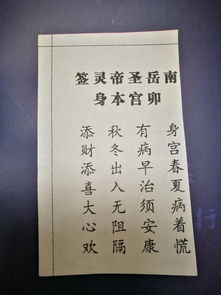 南岳圣帝灵签
卯宫本身
身宫春夏病着慌
有病早治须安康
秋冬出入无阻隔
添财添喜大心欢
行